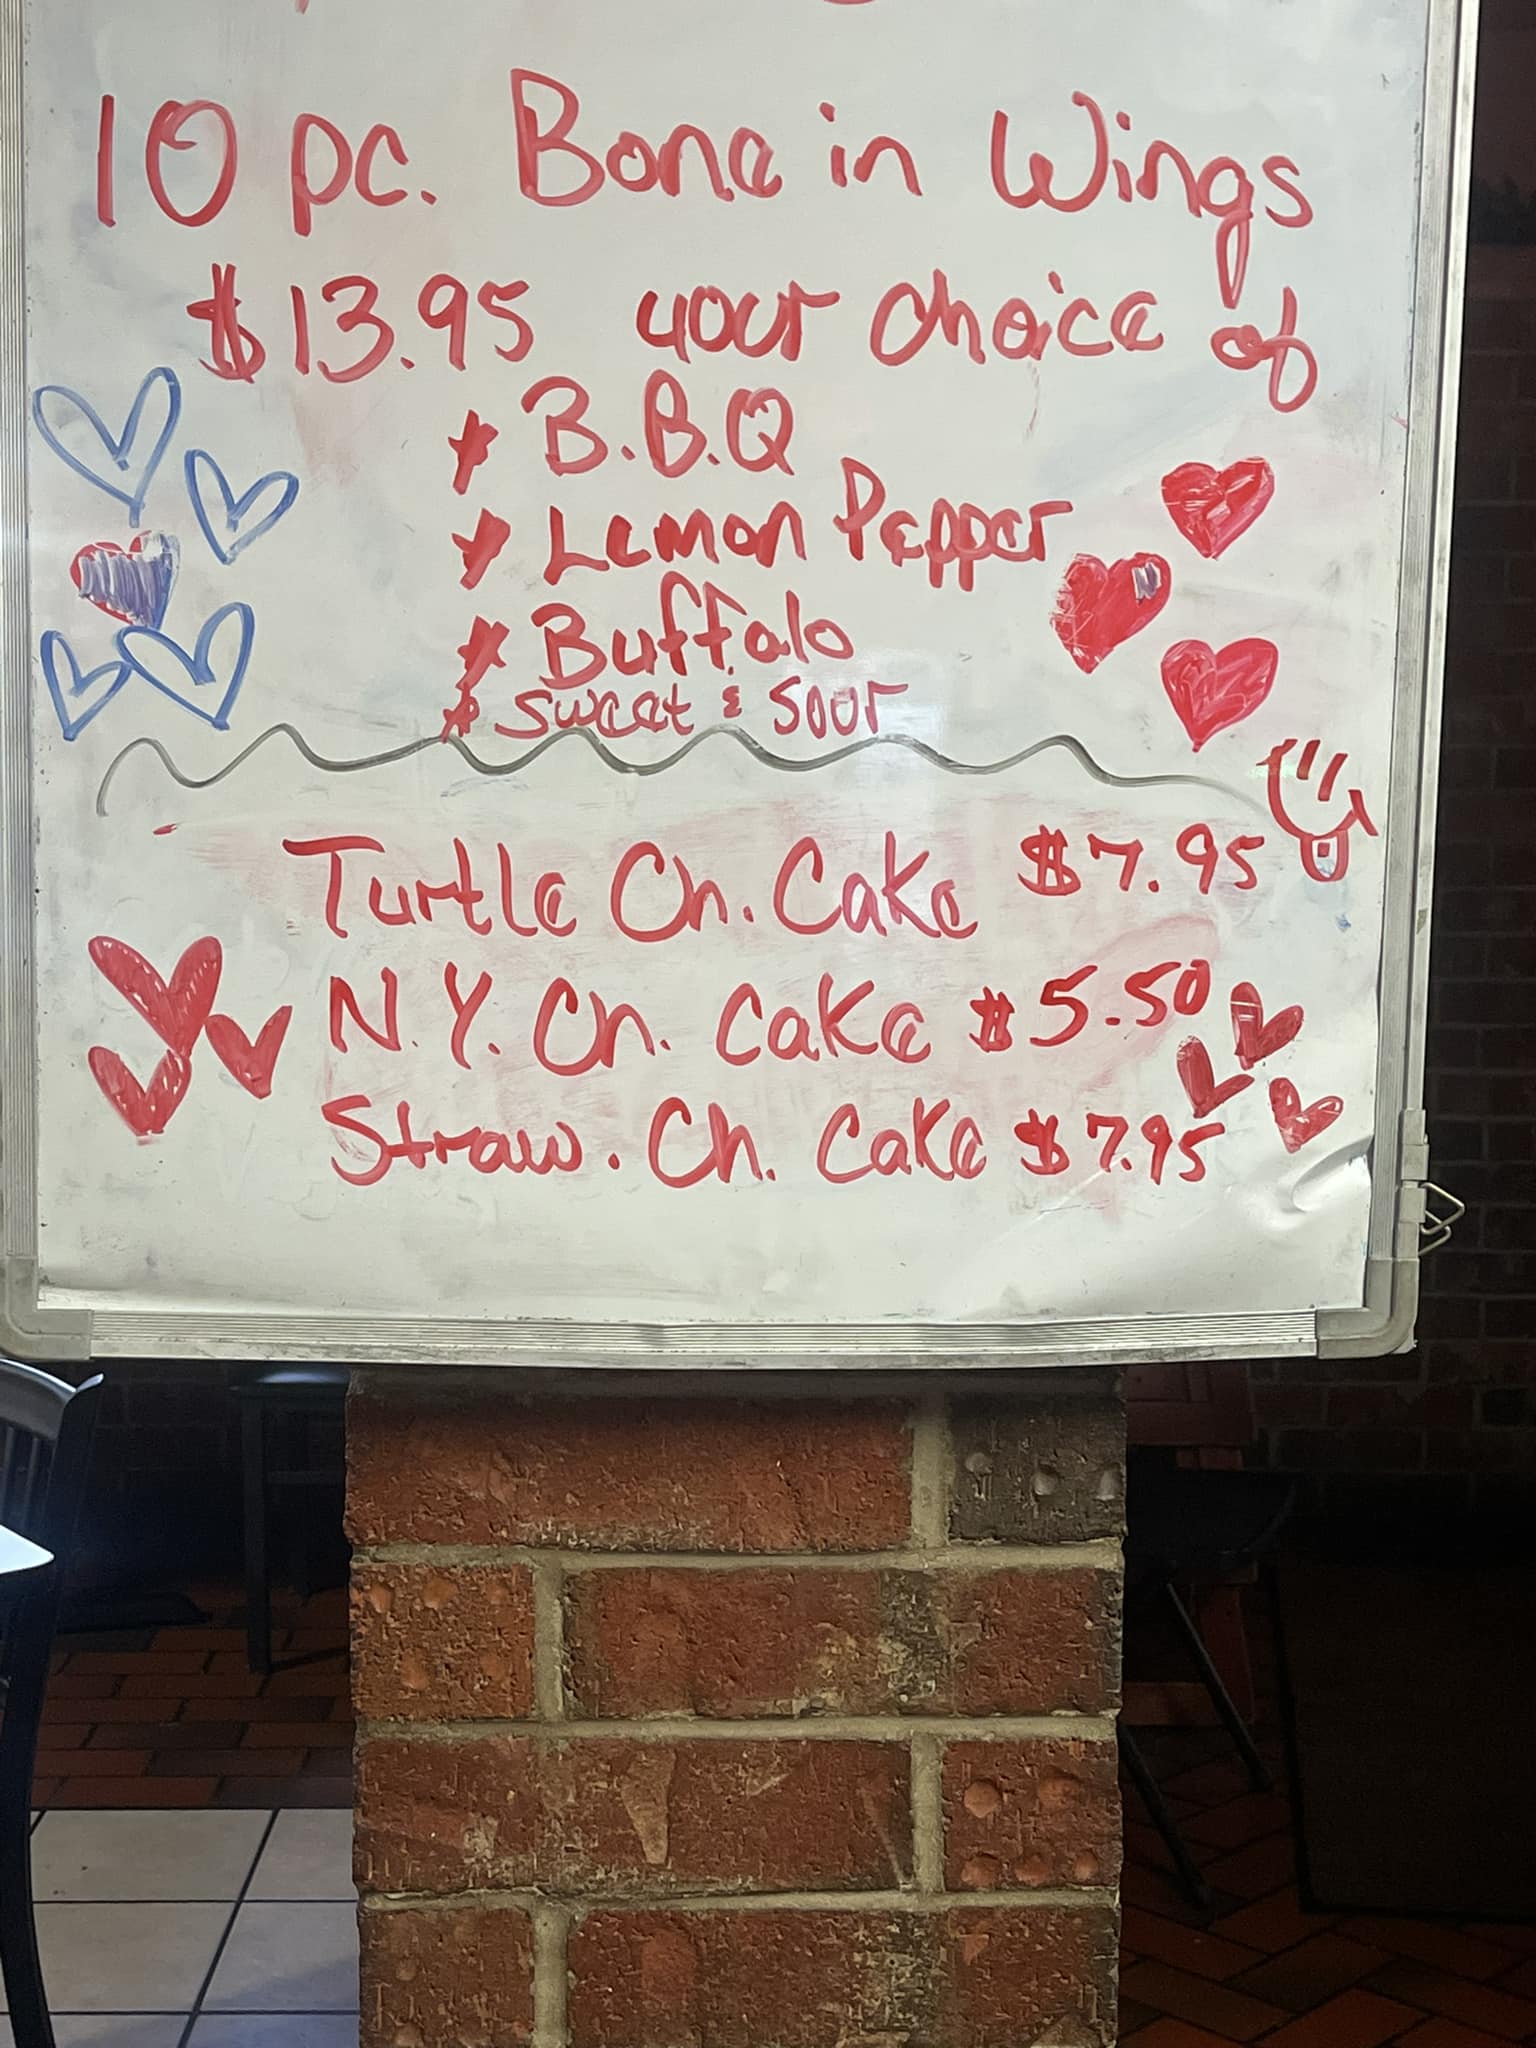 10 pc. Bone in Wings
$13.95 your choice of
* B.B.Q
* Lemon Pepper
* Buffalo
* Sweet & Sour
Turtle Ch. Cake $7.95
N.Y. Ch. Cake $5.50
Straw. Ch. Cake $7.95